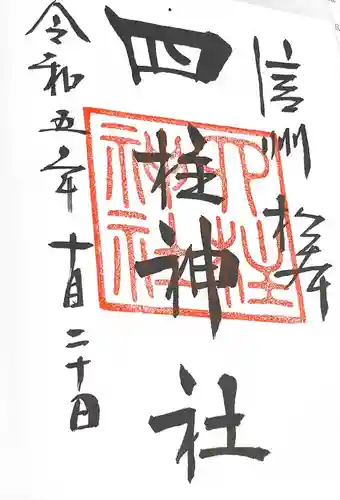 信州 松本
四柱神社
令和五年 十月二十日